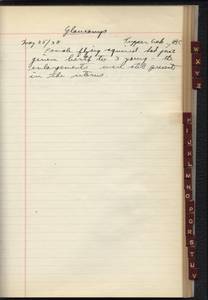 Glaucomys
May 25/38 Tupper Oak, BC
Female flying squirrel had just
given birth to 3 young - the
enlargements were still present
in the uterus.
W
X
Y
Z
I
J
K
L
M
N
O
P
Q
R
S
T
U
V